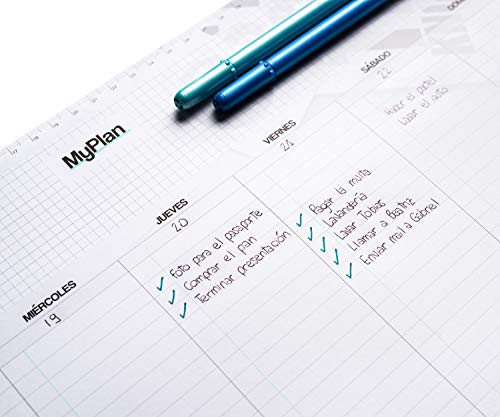 MyPlan
MIÉRCOLES
19
JUEVES
20
Foto para el pasaporte
Comprar el pan
Terminar presentación
VIERNES
21
Pagar la multa
Lavandería
Lavar Tobias
Llamar a Beatriz
Enviar mail a Gabriel
SÁBADO
22
Hacer el pastel
Lavar el auto